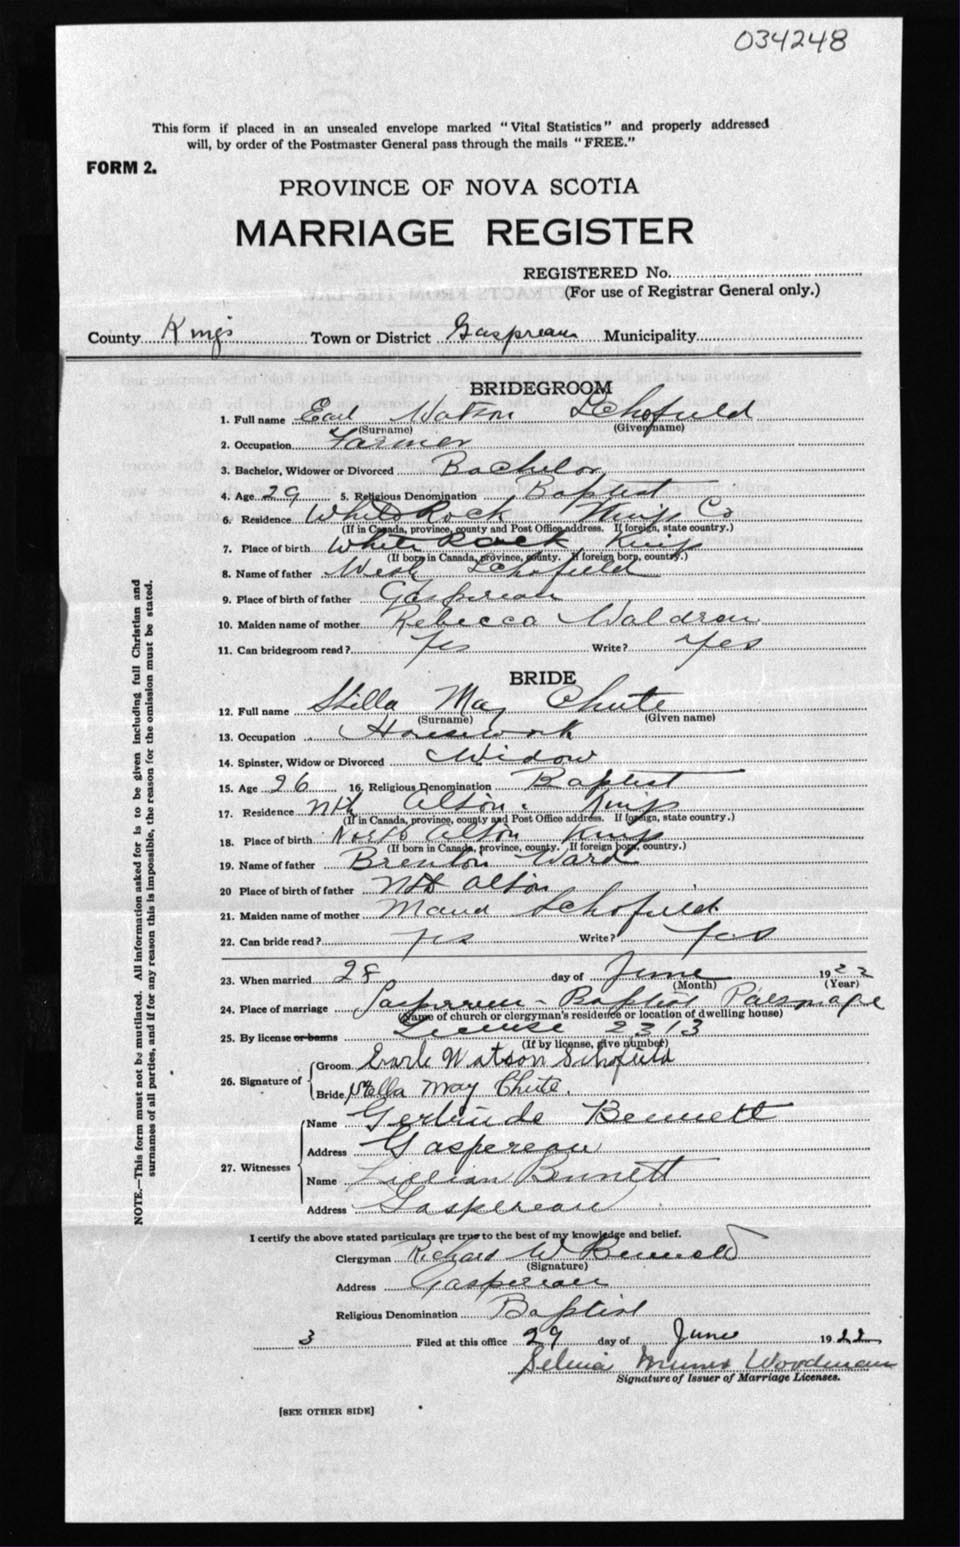 034248
This form if placed in an unsealed envelope marked "Vital Statistics" and properly addressed
will, by order of the Postmaster General pass through the mails "FREE."
FORM 2.
PROVINCE OF NOVA SCOTIA
MARRIAGE REGISTER
REGISTERED No.
(For use of Registrar General only.)
County Kings Town or District Gaspereau Municipality
BRIDEGROOM
1. Full name Earl Watson Schofield
(Surname) (Given name)
2. Occupation Farmer
3. Bachelor, Widower or Divorced Bachelor
4. Age 29 5. Religious Denomination Baptist
6. Residence White Rock Kings Co
(If in Canada, province, county and Post Office address. If foreign, state country.)
7. Place of birth White Rock Kings
(If born in Canada, province, county. If foreign born, country.)
8. Name of father Schofield
9. Place of birth of father Gaspereau
10. Maiden name of mother Rebecca Waldron
11. Can bridegroom read? Yes Write? Yes
BRIDE
12. Full name Stella May Chute
(Surname) (Given name)
13. Occupation Housework
14. Spinster, Widow or Divorced Widow
15. Age 26 16. Religious Denomination Baptist
17. Residence Nth Alton Kings
(If in Canada, province, county and Post Office address. If foreign, state country.)
18. Place of birth North Alton Kings
(If born in Canada, province, county. If foreign born, country.)
19. Name of father Brenton Ward
20 Place of birth of father Nth Alton
21. Maiden name of mother Maud Schofield
22. Can bride read? Yes Write? Yes
23. When married 28 day of June 1922
(Month) (Year)
24. Place of marriage Gaspereau - Baptist Parsonage
(Name of church or clergyman's residence or location of dwelling house)
25. By license or banns License 2313
(If by license, give number)
26. Signature of
Groom Earle Watson Schofield
Bride Stella May Chute.
27. Witnesses
Name Gertrude Bennett
Address Gaspereau
Name Lillian Bennett
Address Gaspereau
I certify the above stated particulars are true to the best of my knowledge and belief.
Clergyman Richard W Bennett
(Signature)
Address Gaspereau
Religious Denomination Baptist
3 Filed at this office 29 day of June 1922
Selina Woodman
Signature of Issuer of Marriage Licenses.
[SEE OTHER SIDE]
NOTE.—This form must not be mutilated. All information asked for is to be given including full Christian and
surnames of all parties, and if for any reason this is impossible, the reason for the omission must be stated.